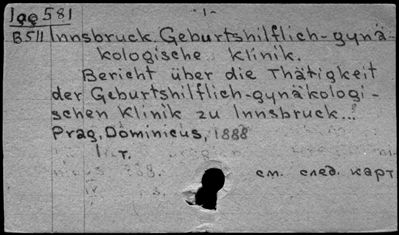 -1-
B511 Innsbruck. Geburtshilflich-gynä-
kologische Klinik.
Bericht über die Thätigkeit
der Geburtshilflich-gynäkologi-
schen Klinik zu Innsbruck...
Prag, Dominicus, 1888
т.
см. след. карт